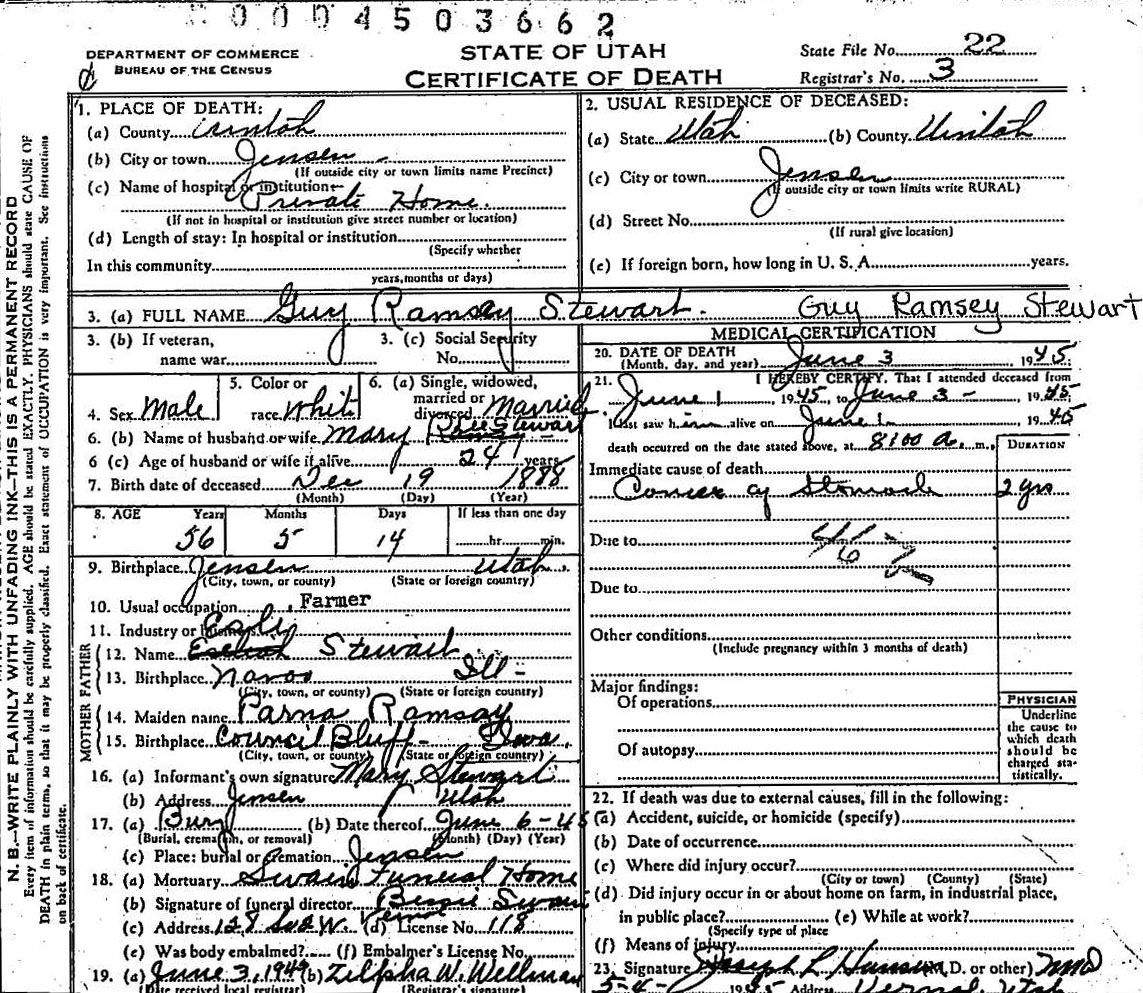 0004503662
DEPARTMENT OF COMMERCE
BUREAU OF THE CENSUS
STATE OF UTAH
CERTIFICATE OF DEATH
State File No. 22
Registrar's No. 3
1. PLACE OF DEATH:
(a) County
(b) City or town Jensen
(If outside city or town limits name Precinct)
(c) Name of hospital or institution
Private Home.
(If not in hospital or institution give street number or location)
(d) Length of stay: In hospital or institution
(Specify whether
In this community
years, months or days)
2. USUAL RESIDENCE OF DECEASED:
(a) State Utah (b) County Uintah
(c) City or town Jensen
(If outside city or town limits write RURAL)
(d) Street No.
(If rural give location)
(e) If foreign born, how long in U. S. A. years.
3. (a) FULL NAME Guy Ramsey Stewart. Guy Ramsey Stewart
3. (b) If veteran, name war
3. (c) Social Security No.
4. Sex Male
5. Color or race Whit
6. (a) Single, widowed, married or divorced Married
6. (b) Name of husband or wife Mary Stewart
6 (c) Age of husband or wife if alive 24 years
7. Birth date of deceased Dec 19 1888
(Month) (Day) (Year)
8. AGE Years Months Days If less than one day
56 5 14 hr. min.
9. Birthplace Jensen Utah.
(City, town, or county) (State or foreign country)
10. Usual occupation Farmer
11. Industry or
MOTHER FATHER
12. Name Esely Stewart
13. Birthplace Navoo Ill-
(City, town, or county) (State or foreign country)
14. Maiden name Parna Ramsay
15. Birthplace Council Bluff- Iowa.
(City, town, or county) (State or foreign country)
16. (a) Informant's own signature Mary Stewart
(b) Address Jensen Utah
17. (a) Bury (b) Date thereof June 6-45
(Burial, cremation, or removal) (Month) (Day) (Year)
(c) Place: burial or cremation Jensen
18. (a) Mortuary Swain Funeral Home
(b) Signature of funeral director Bessie Swain
(c) Address 128 So 2 W. Vernal (d) License No. 118
(e) Was body embalmed? (f) Embalmer's License No.
19. (a) June 3, 194 (b) Zilpha W. Wellman
(Date received local registrar) (Registrar's signature)
MEDICAL CERTIFICATION
20. DATE OF DEATH
(Month, day, and year) June 3 1945
21. I HEREBY CERTIFY, That I attended deceased from
June 1, 1945, to June 3-, 1945;
I last saw him alive on June 1- 1945
death occurred on the date stated above, at 8:00 a. m.
DURATION
Immediate cause of death
Cancer of Stomach 2 yrs
Due to
Due to
Other conditions
(Include pregnancy within 3 months of death)
Major findings:
Of operations
Of autopsy
PHYSICIAN
Underline
the cause to
which death
should be
charged sta-
tistically.
22. If death was due to external causes, fill in the following:
(a) Accident, suicide, or homicide (specify)
(b) Date of occurrence
(c) Where did injury occur?
(City or town) (County) (State)
(d) Did injury occur in or about home on farm, in industrial place,
in public place? (e) While at work?
(Specify type of place
(f) Means of injury
23. Signature Joseph L Hansen (M. D. or other) MD
5-4- 1945 Address Vernal, Utah
N. B.—WRITE PLAINLY WITH UNFADING INK—THIS IS A PERMANENT RECORD
Every item of information should be carefully supplied. AGE should be stated EXACTLY. PHYSICIANS should state CAUSE OF
DEATH in plain terms, so that it may be properly classified. Exact statement of OCCUPATION is very important. See instructions
on back of certificate.